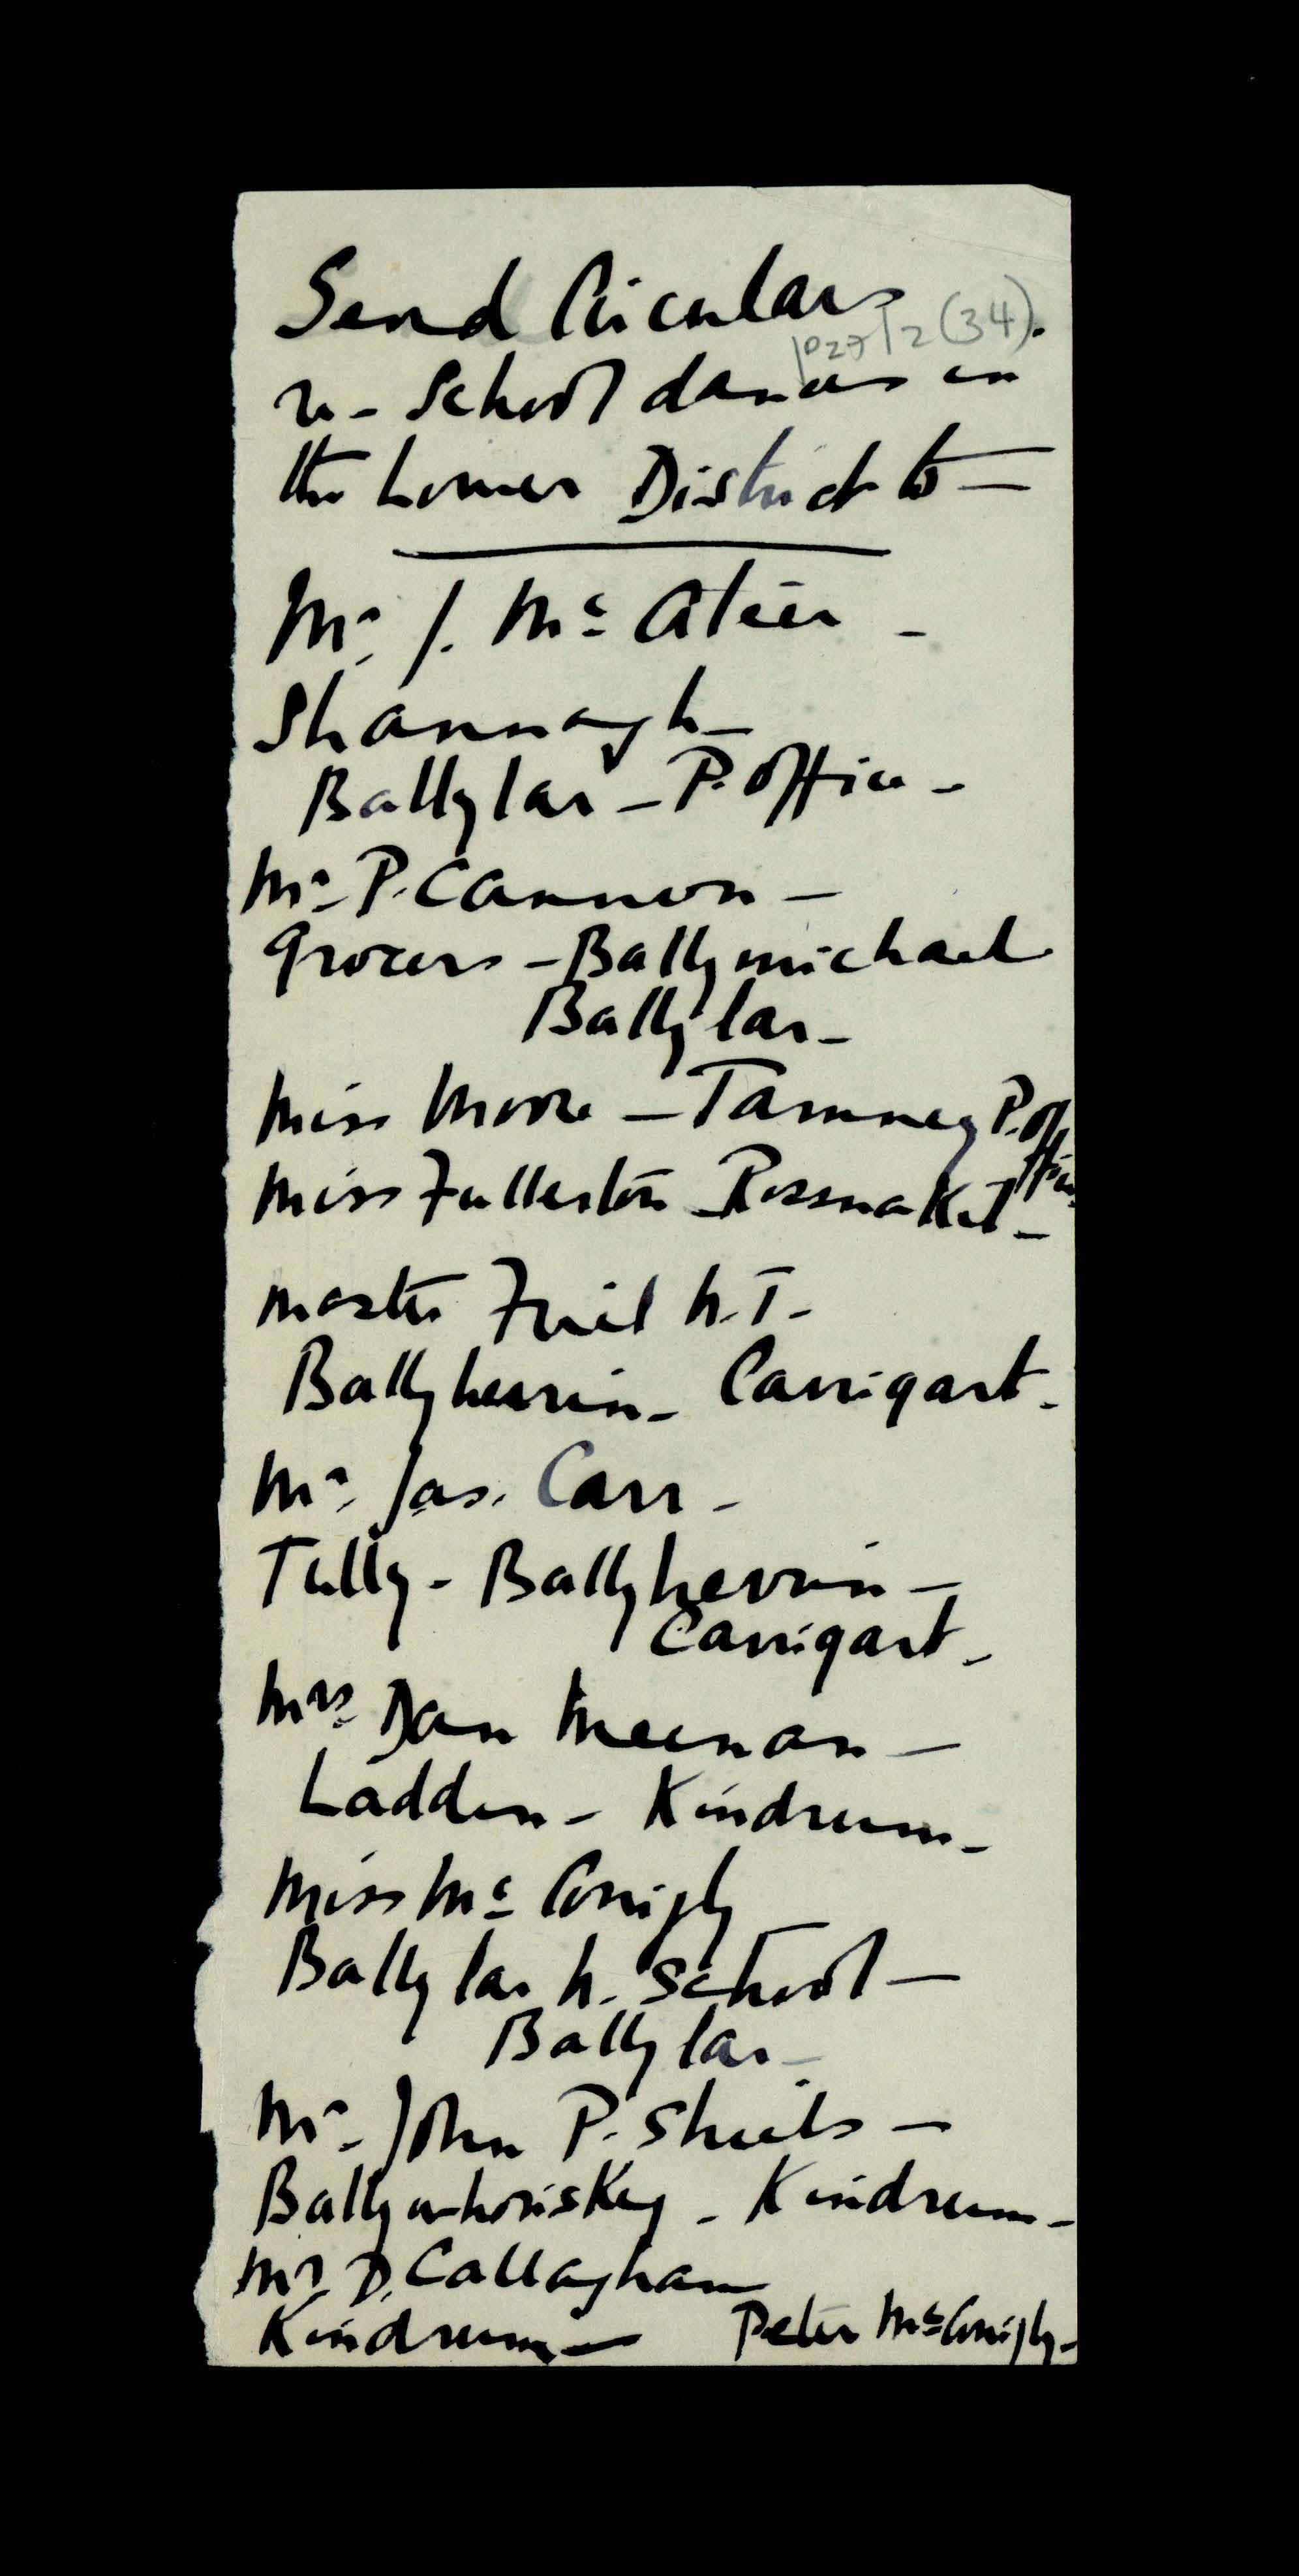 Send Circulars
P27/2(34).
re - School dances in
the Lower District to —
Mr. J. McAteer -
Shannagh -
Ballylar - P. Office -
Mr. P. Cannon -
Grocers - Ballymichael
Ballylar -
Miss Moore - Tamney P. Office
Miss Fullerton - Rossnakil -
Master Friel N.T.-
Ballyheerin - Carrigart -
Mr. Jas. Carr -
Tully - Ballyheerin -
Carrigart -
Mrs. Dan Meenan -
Ladden - Kindrum -
Miss McConigly
Ballylar N. School -
Ballylar -
Mr. John P. Shiels -
Ballywhoriskey - Kindrum -
Mr. D. Callaghan
Kindrum —
Peter McConigly -